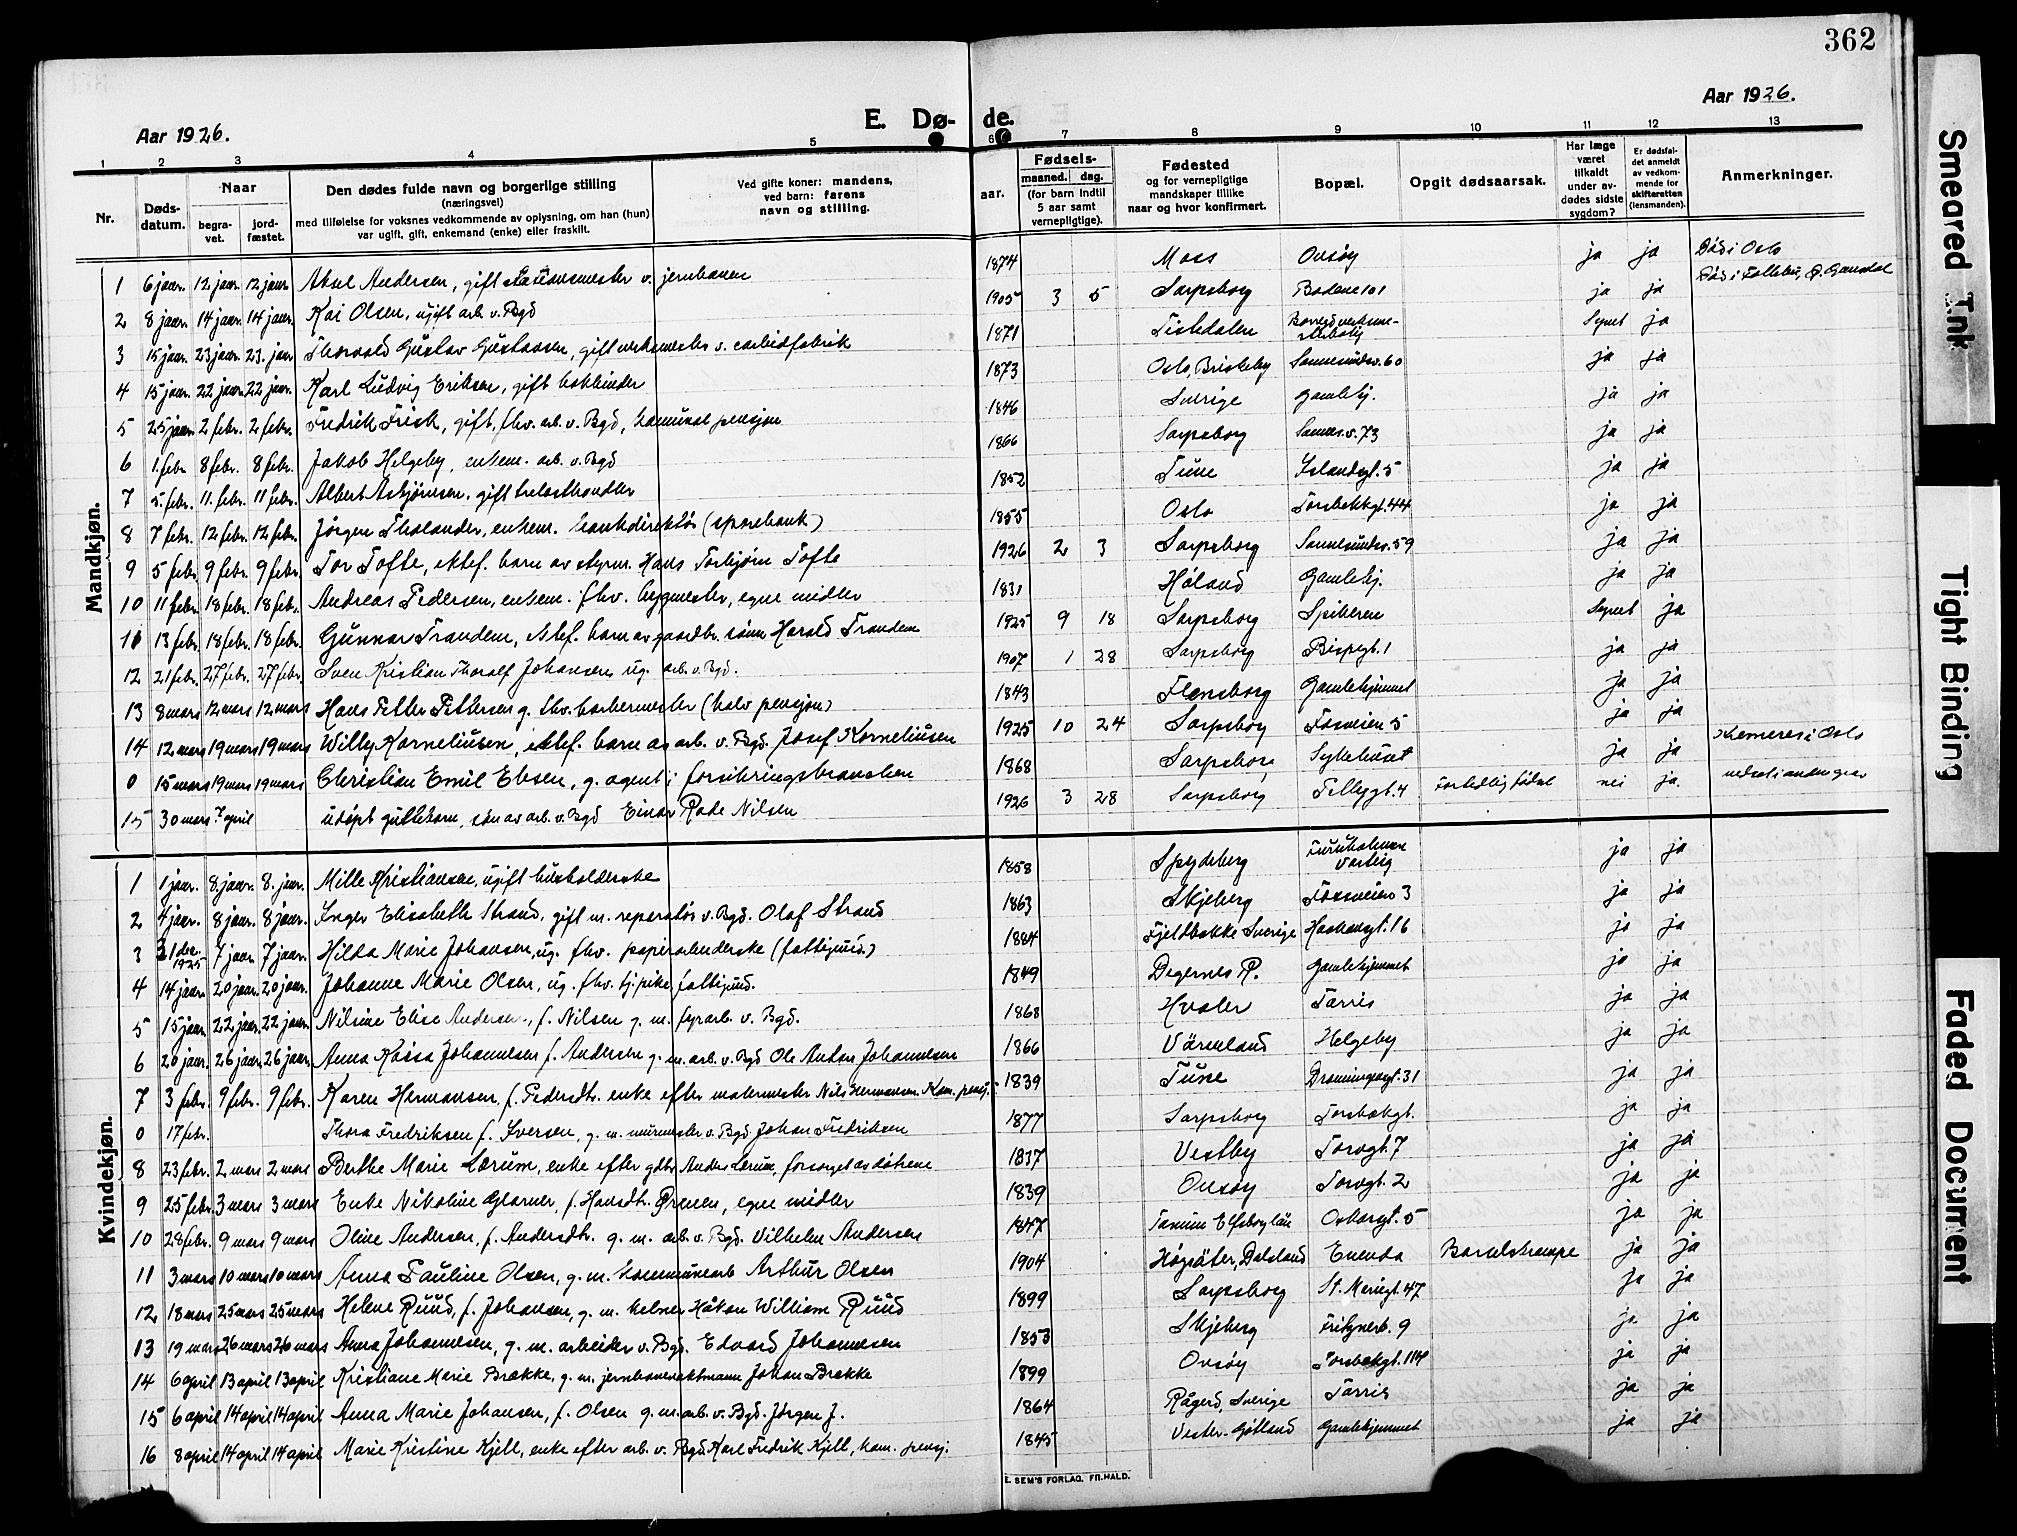 362
Aar 1926.
E. Dø- de.
Aar 1926.
1 2 3 4 5 6 7 8 9 10 11 12 13
Nr.
Døds-datum.
Naar
begra-vet.
jord-fæstet.
Den dødes fulde navn og borgerlige stilling
(næringsvei)
med tilføielse for voksnes vedkommende av oplysning, om han (hun)
var ugift, gift, enkemand (enke) eller fraskilt.
Ved gifte koner: mandens,
ved barn: farens
navn og stilling.
aar.
Fødsels-
maaned. dag.
(for barn indtil
5 aar samt
vernepligtige).
Fødested
og for vernepligtige
mandskaper tillike
naar og hvor konfirmert.
Bopæl.
Opgit dødsaarsak.
Har læge
været
tilkaldt
under av-
dødes sidste
sygdom?
Er dødsfal-
det anmeldt
av vedkom-
mende for
skifteretten
(lensmanden).
Anmerkninger.
Mandkjøn.
1 6 jaar. 12 jaar 12 jaar Aksel Andersen, gift v. jernbanen 1874 Moss Onsøy ja ja Død i Oslo
2 8 jaar. 14 jaar. 14 jaar. Kai Olsen, ugift arb. v. Bgd 1905 3 5 Sarpsborg Badene 101 ja ja Død i Follebu, Ø. Gausdal
3 15 jaar. 23 jaar. 23. jaar Thorvald Gustav Gustavsen, gift verksmester v. carbidfabrik 1871 Tistedalen Synet ja
4 15 jaar. 22 jaar. 22 jaar. Karl Ludvig Eriksen, gift bokbinder 1873 Oslo, Briskeby Sannesundsv. 60 ja ja
5 25 jaar. 2 febr. 2 febr. Fredrik Frisk, gift, fhv. arb. v. Bgd, komunal pensjon 1846 Sverige Gamlehj. ja ja
6 1. febr 8 febr. 8 febr. Jakob Helgeby, enkem. arb. v. Bgd 1866 Sarpsborg Sannes.v. 73 ja ja
7 5. febr. 11. febr. 11 febr. Albert Asbjørnsen, gift trelasthandler 1852 Tune Islandsgt. 5 ja ja
8 7 febr. 12 febr. 12 febr. Jørgen Tholander, enkem. bankdirektør (sparebank) 1855 Oslo Torsbekkgt. 44 ja ja
9 5 febr. 9 febr. 9 febr. Tor Tofte, ektef. barn av styrm. Hans Torbjørn Tofte 1926 2 3 Sarpsborg Sannesundsv. 59 ja ja
10 11 febr. 18 febr. 18 febr. Andreas Pedersen, enkem. fhv. bygmester, egne midler 1831 Høland Gamlehj. ja ja
11 13 febr. 18 febr. 18 febr. Gunnar Trandem, ektef. barn av gaardbr. sønn Harald Trandem 1925 9 18 Sarpsborg Spikeren Synet ja
12 21 febr. 27 febr. 27 febr. Sven Kristian Thoralf Johansen ug. arb. v. Bgd. 1907 1 28 Sarpsborg Bispegt. 1 ja ja
13 8 mars 12 mars 12 mars Hans Petter Pettersen g. fhv. barbermester (halv pensjon) 1843 Flensborg Gamlehjemmet ja ja
14 12 mars 19 mars 19 mars Willy Korneliusen, ektef. barn av arb. v. Bgd. Josef Korneliusen 1925 10 24 Sarpsborg Fosveien 5 ja ja
0 15 mars 19 mars 19 mars Christian Emil Ebsen, g. agent i forsikringsbranchen 1868 Sarpsborg Sykehuset ja ja Kremeres i Oslo
15 30 mars 7 april udøpt guttebarn, søn av arb. v. Bgd Einar Rode Nilsen 1926 3 28 Sarpsborg Fellyggt. 4 For tidlig født nei ja. nedsat i anden grav
Kvindekjøn.
1 1 jaar. 8. jaar. 8. jaar. Mille Kristiansen, ugift husholderske 1858 Spydeberg Furuholmen Varteig ja ja
2 4 jaar. 8 jaar. 8 jaar. Inger Elisabeth Strand, gift m. reparatør v. Bgd. Olaf Strand 1863 Skjeberg Fosveien 3 ja ja
3 31 des. 1925 7 jaar 7 jaar. Hilda Marie Johansen, ug. fhv. papirarbeiderske (fattigund.) 1884 Fjeldbakke Sverige Haakonsgt. 16 ja ja
4 14 jaar. 20 jaar. 20 jaar. Johanne Marie Olsen, ug. fhv. tj.pike, fattigund. 1849 Degernes R. Gamlehjemmet ja ja
5 15 jaar. 22 jaar. 22 jaar. Nilsine Elise Andersen, f. Nilsen g. m. fyrarb. v. Bgd. 1868 Hvaler Tarris ja ja
6 20 jaar. 26 jaar. 26 jaar. Anna Kaisa Johannesen f. Andersen g. m. arb. v. Bgd Ole Anton Johannesen 1866 Värmland Helgeby ja ja
7 3 febr. 9 febr. 9 febr. Karen Hermansen, f. Pedersdtr. enke efter malermester Nils Hermansen. Kom. pensj. 1839 Tune Dronningensgt. 31 ja ja
0 17 febr. Thora Fredriksen f. Iversen, g. m. murmester v. Bgd Johan Fredriksen 1877 Sarpsborg Torsbækgt. ja ja
8 23 febr. 2 mars 2 mars Berthe Marie Lærum, enke efter gdbr. Anders Lærum, forsørget av døtrene 1837 Vestby Torvgt. 7 ja ja
9 25 febr. 3 mars 3 mars Enke Nikoline Glarner, f. Hansdtr. Grenen, egne midler 1839 Onsøy Torvgt. 2 ja ja
10 28 febr. 9 mars 9 mars Oline Andersen, f. Andersdtr. g. m. arb. v. Bgd. Vilhelm Andersen 1847 Tanum Elfsborglän Oskarsgt. 5 ja ja
11 3 mars 10 mars 10 mars Anna Pauline Olsen, g. m. kommunearb Arthur Olsen 1904 Høgsäter, Dalsland Enenda Barselskrampe ja ja
12 18 mars 25 mars 25 mars Helene Ruud, f. Johansen, g. m. kelner Håkon William Ruud 1899 Sarpsborg St. Mariegt. 47 ja ja
13 19 mars 26 mars 26 mars Anna Johannesen, g. m. arbeider v. Bgd. Edvard Johannesen 1853 Skjeberg Fritznerb. 9 ja ja
14 6 april 13 april 13 april Kristiane Marie Brække, g. m. jernbaneraktmann Johan Brække 1899 Onsøy Torsbækgt. 114 ja ja
15 6 april 14 april 14 april Anna Marie Johansen, f. Olsen g. m. arb. v. Bgd. Jørgen J. 1864 Rågerd, Sverige Tarris ja ja
16 8 april 14 april 14 april Marie Kristine Kjell, enke efter arb. v. Bgd. Karl Fredrik Kjell, kom. pensj. 1845 Vester-Gøtland Gamlehjemmet ja ja
E. SEM'S FORLAG, FR.HALD.
Smeared Ink
Tight Binding
Faded Document